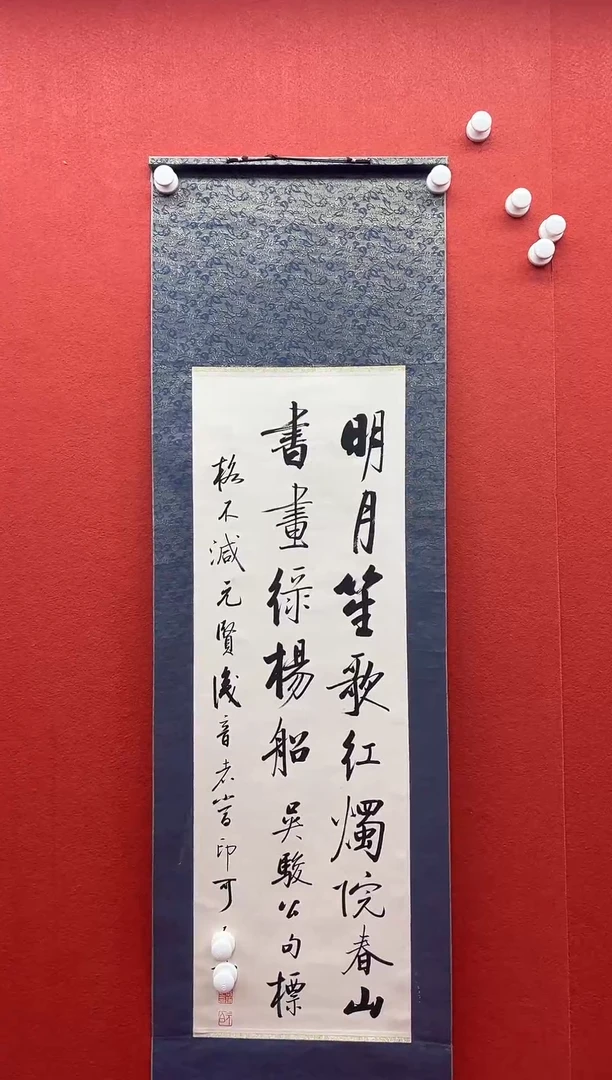 明月笙歌红燭院春山
書畫綠楊船吳駿公句標
格不減元賢後音老嵩印可